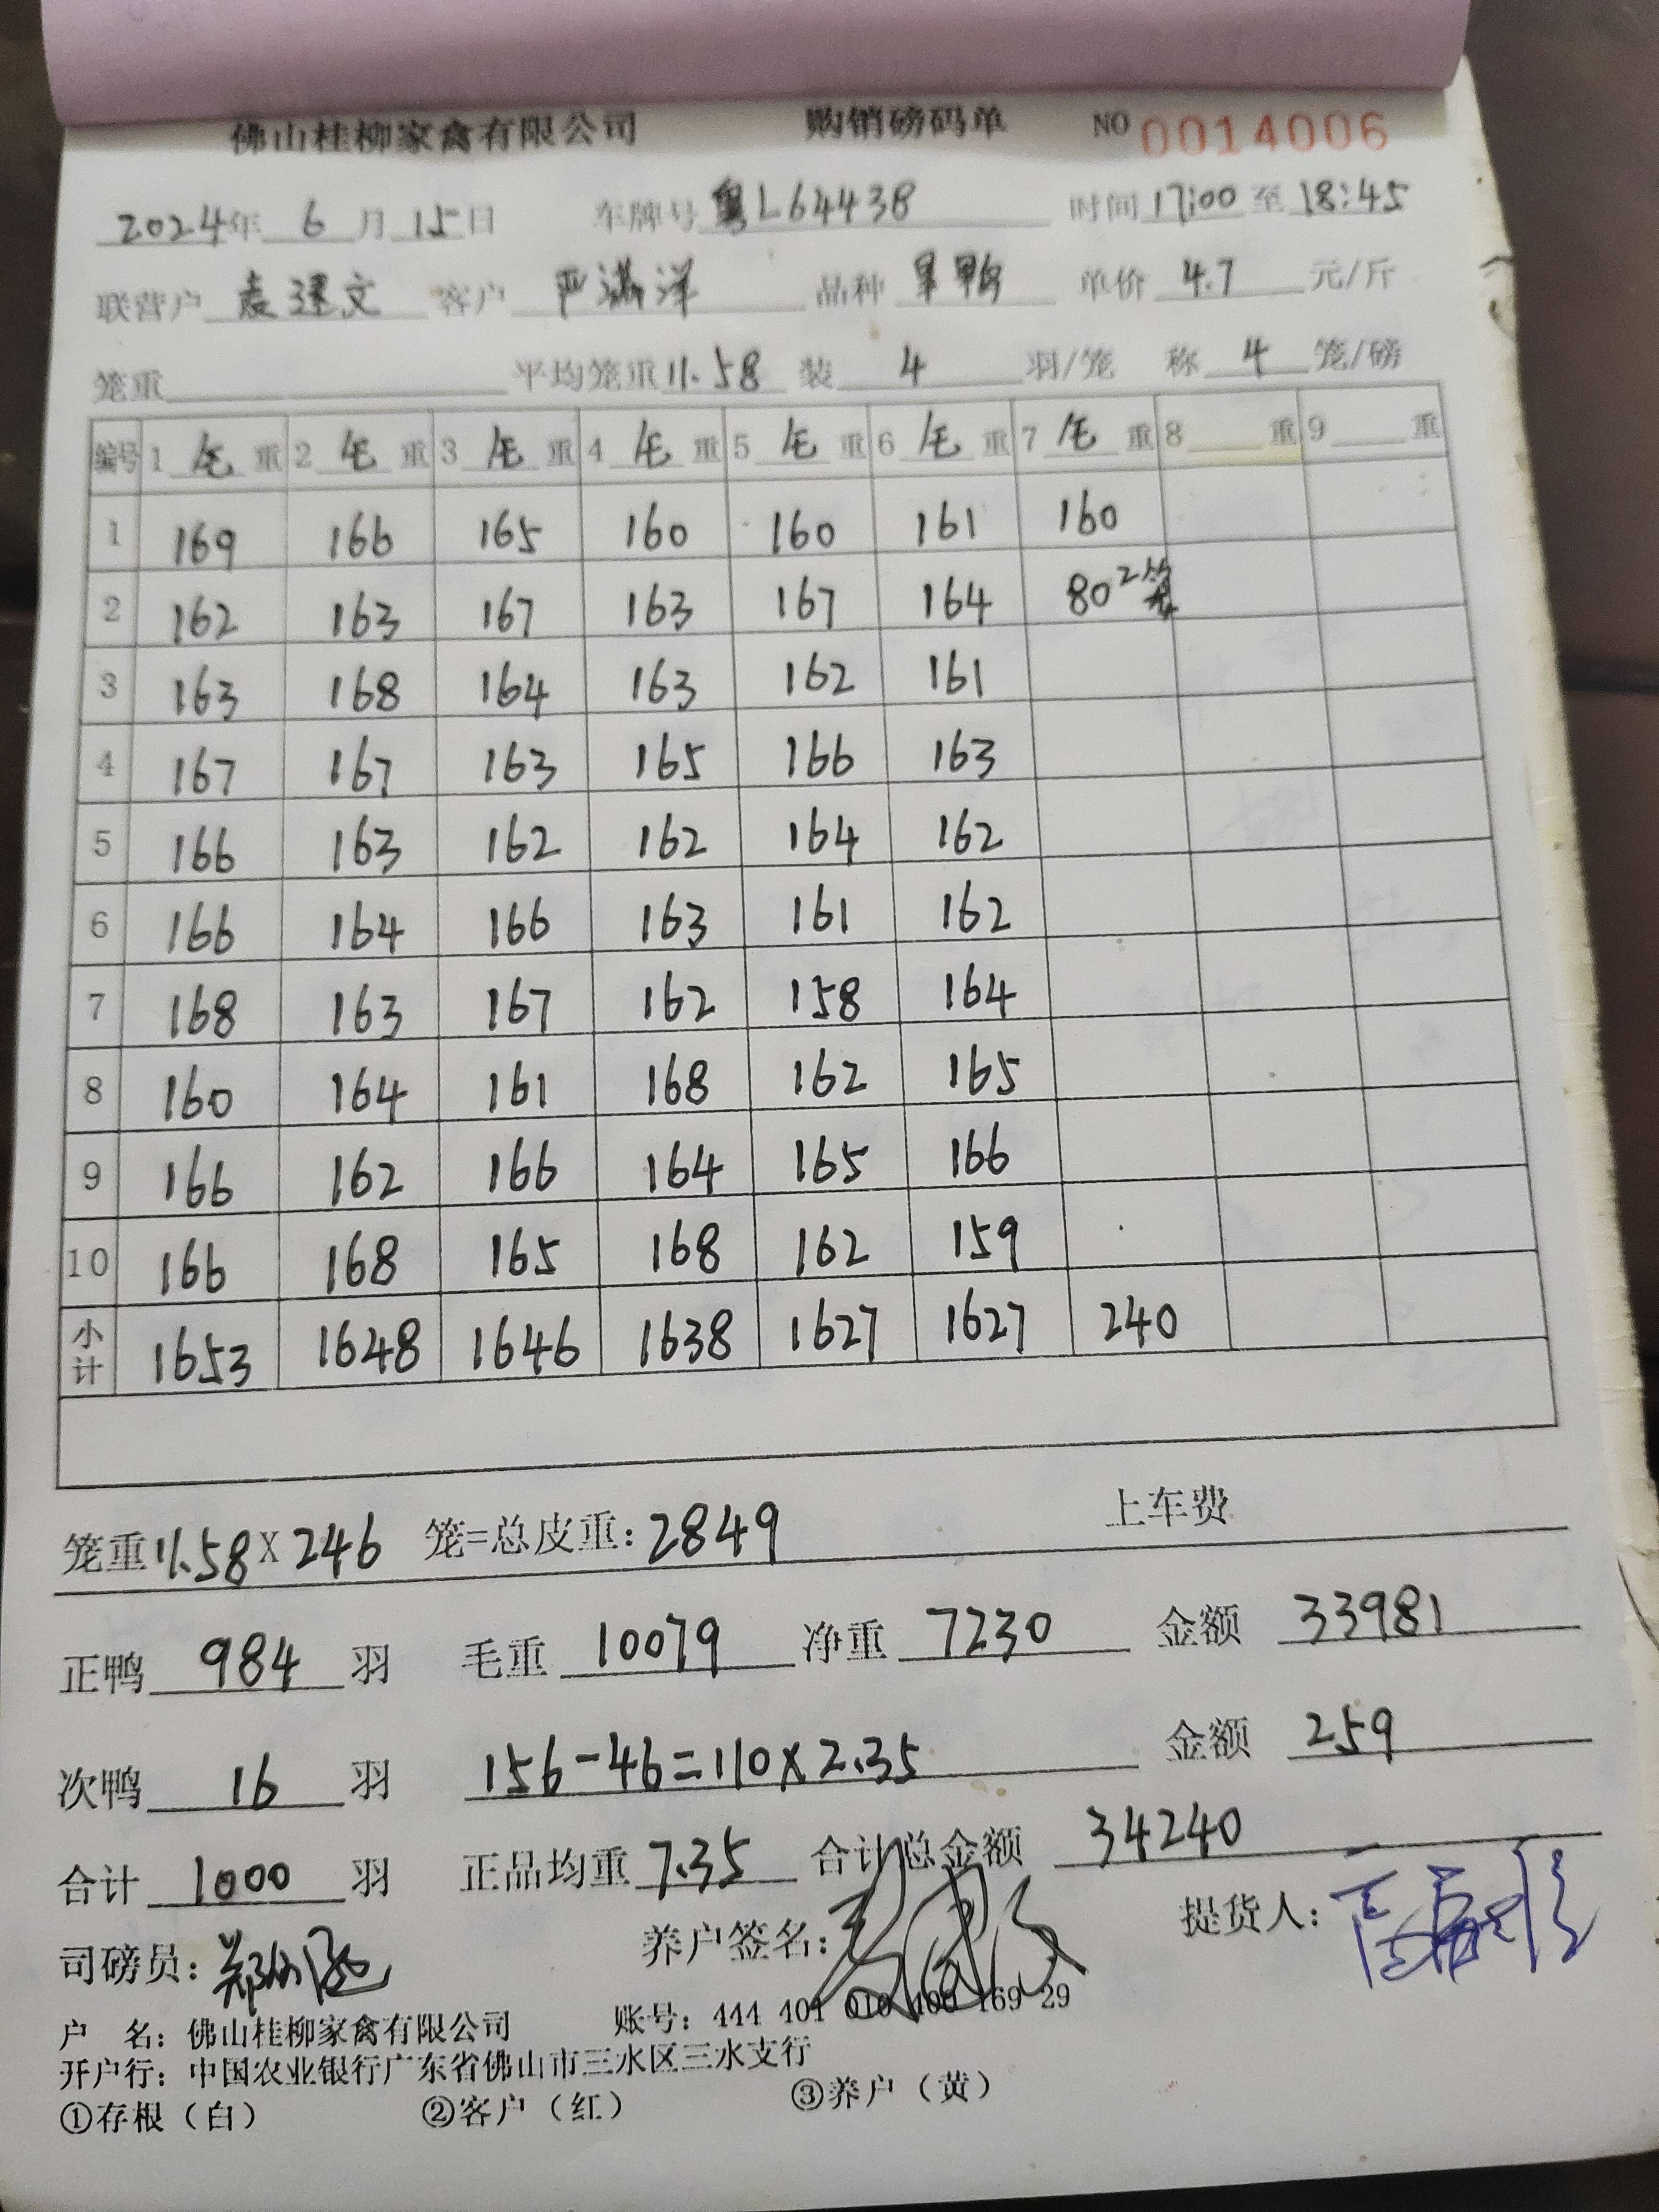 佛山桂柳家禽有限公司 购销磅码单 NO 0014006
2024年 6 月 15 日 车牌号 粤L64438 时间 17:00 至 18:45
联营户 袁建文 客户 严满洋 品种 旱鸭 单价 4.7 元/斤
笼重 平均笼重 11.58 装 4 羽/笼 称 4 笼/磅
编号 1 毛 重 2 毛 重 3 毛 重 4 毛 重 5 毛 重 6 毛 重 7 毛 重 8 重 9 重
1 169 166 165 160 160 161 160
2 162 163 167 163 167 164 80 2笼
3 163 168 164 163 162 161
4 167 167 163 165 166 163
5 166 163 162 162 164 162
6 166 164 166 163 161 162
7 168 163 167 162 158 164
8 160 164 161 168 162 165
9 166 162 166 164 165 166
10 166 168 165 168 162 159
小计 1653 1648 1646 1638 1627 1627 240
上车费
笼重 11.58 X 246 笼=总皮重: 2849
正鸭 984 羽 毛重 10079 净重 7230 金额 33981
次鸭 16 羽 156-46=110X2.35 金额 259
合计 1000 羽 正品均重 7.35 合计总金额 34240
司磅员: 养户签名: 提货人:
户 名: 佛山桂柳家禽有限公司 账号: 444 401 010 400 169 29
开户行: 中国农业银行广东省佛山市三水区三水支行
①存根（白） ②客户（红） ③养户（黄）